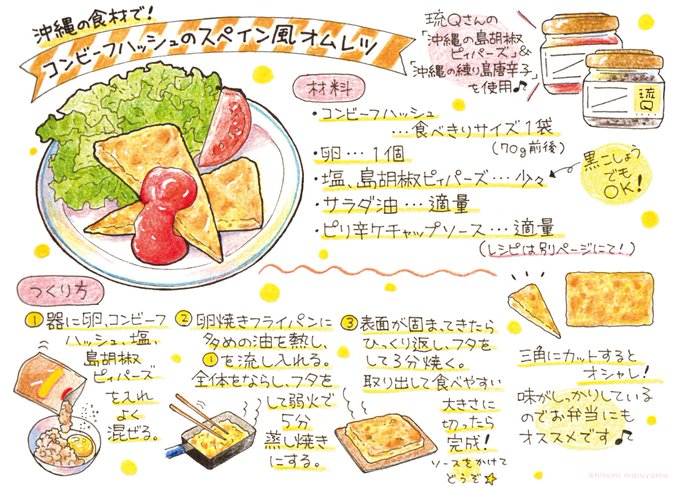 沖縄の食材で!
コンビーフハッシュのスペイン風オムレツ
琉Qさんの
「沖縄の島胡椒
ピィパーズ」&
「沖縄の練り島唐辛子」
を使用♪
琉
Q
材料
・コンビーフハッシュ
…食べきりサイズ1袋
(70g前後)
・卵…1個
・塩、島胡椒ピィパーズ…少々
黒こしょう
でも
OK!
・サラダ油…適量
・ピリ辛ケチャップソース…適量
(レシピは別ページにて!)
つくり方
①器に卵、コンビーフ
ハッシュ、塩、
島胡椒
ピィパーズ
を入れ
よく
混ぜる。
②卵焼きフライパンに
多めの油を熱し、
①を流し入れる。
全体をならし、フタを
して弱火で
5分
蒸し焼き
にする。
③表面が固まってきたら
ひっくり返し、フタを
して3分焼く。
取り出して食べやすい
大きさに
切ったら
完成!
ソースをかけて
どうぞ☆
三角にカットすると
オシャレ!
味がしっかりしている
のでお弁当にも
オススメです♪
©hitomi maruyama